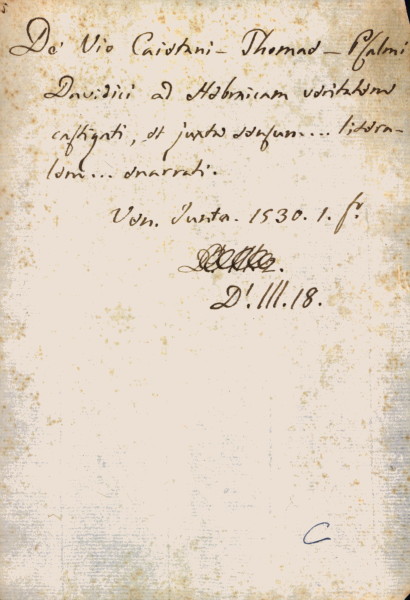 De' Vio Caietani - Thomae - Psalmi
Davidici ad Hebraicam veritatem
castigati, et juxta sensum.... litera-
lem... enarrati.
Ven. Junta. 1530. 1. fo.
D'. III. 18.
C